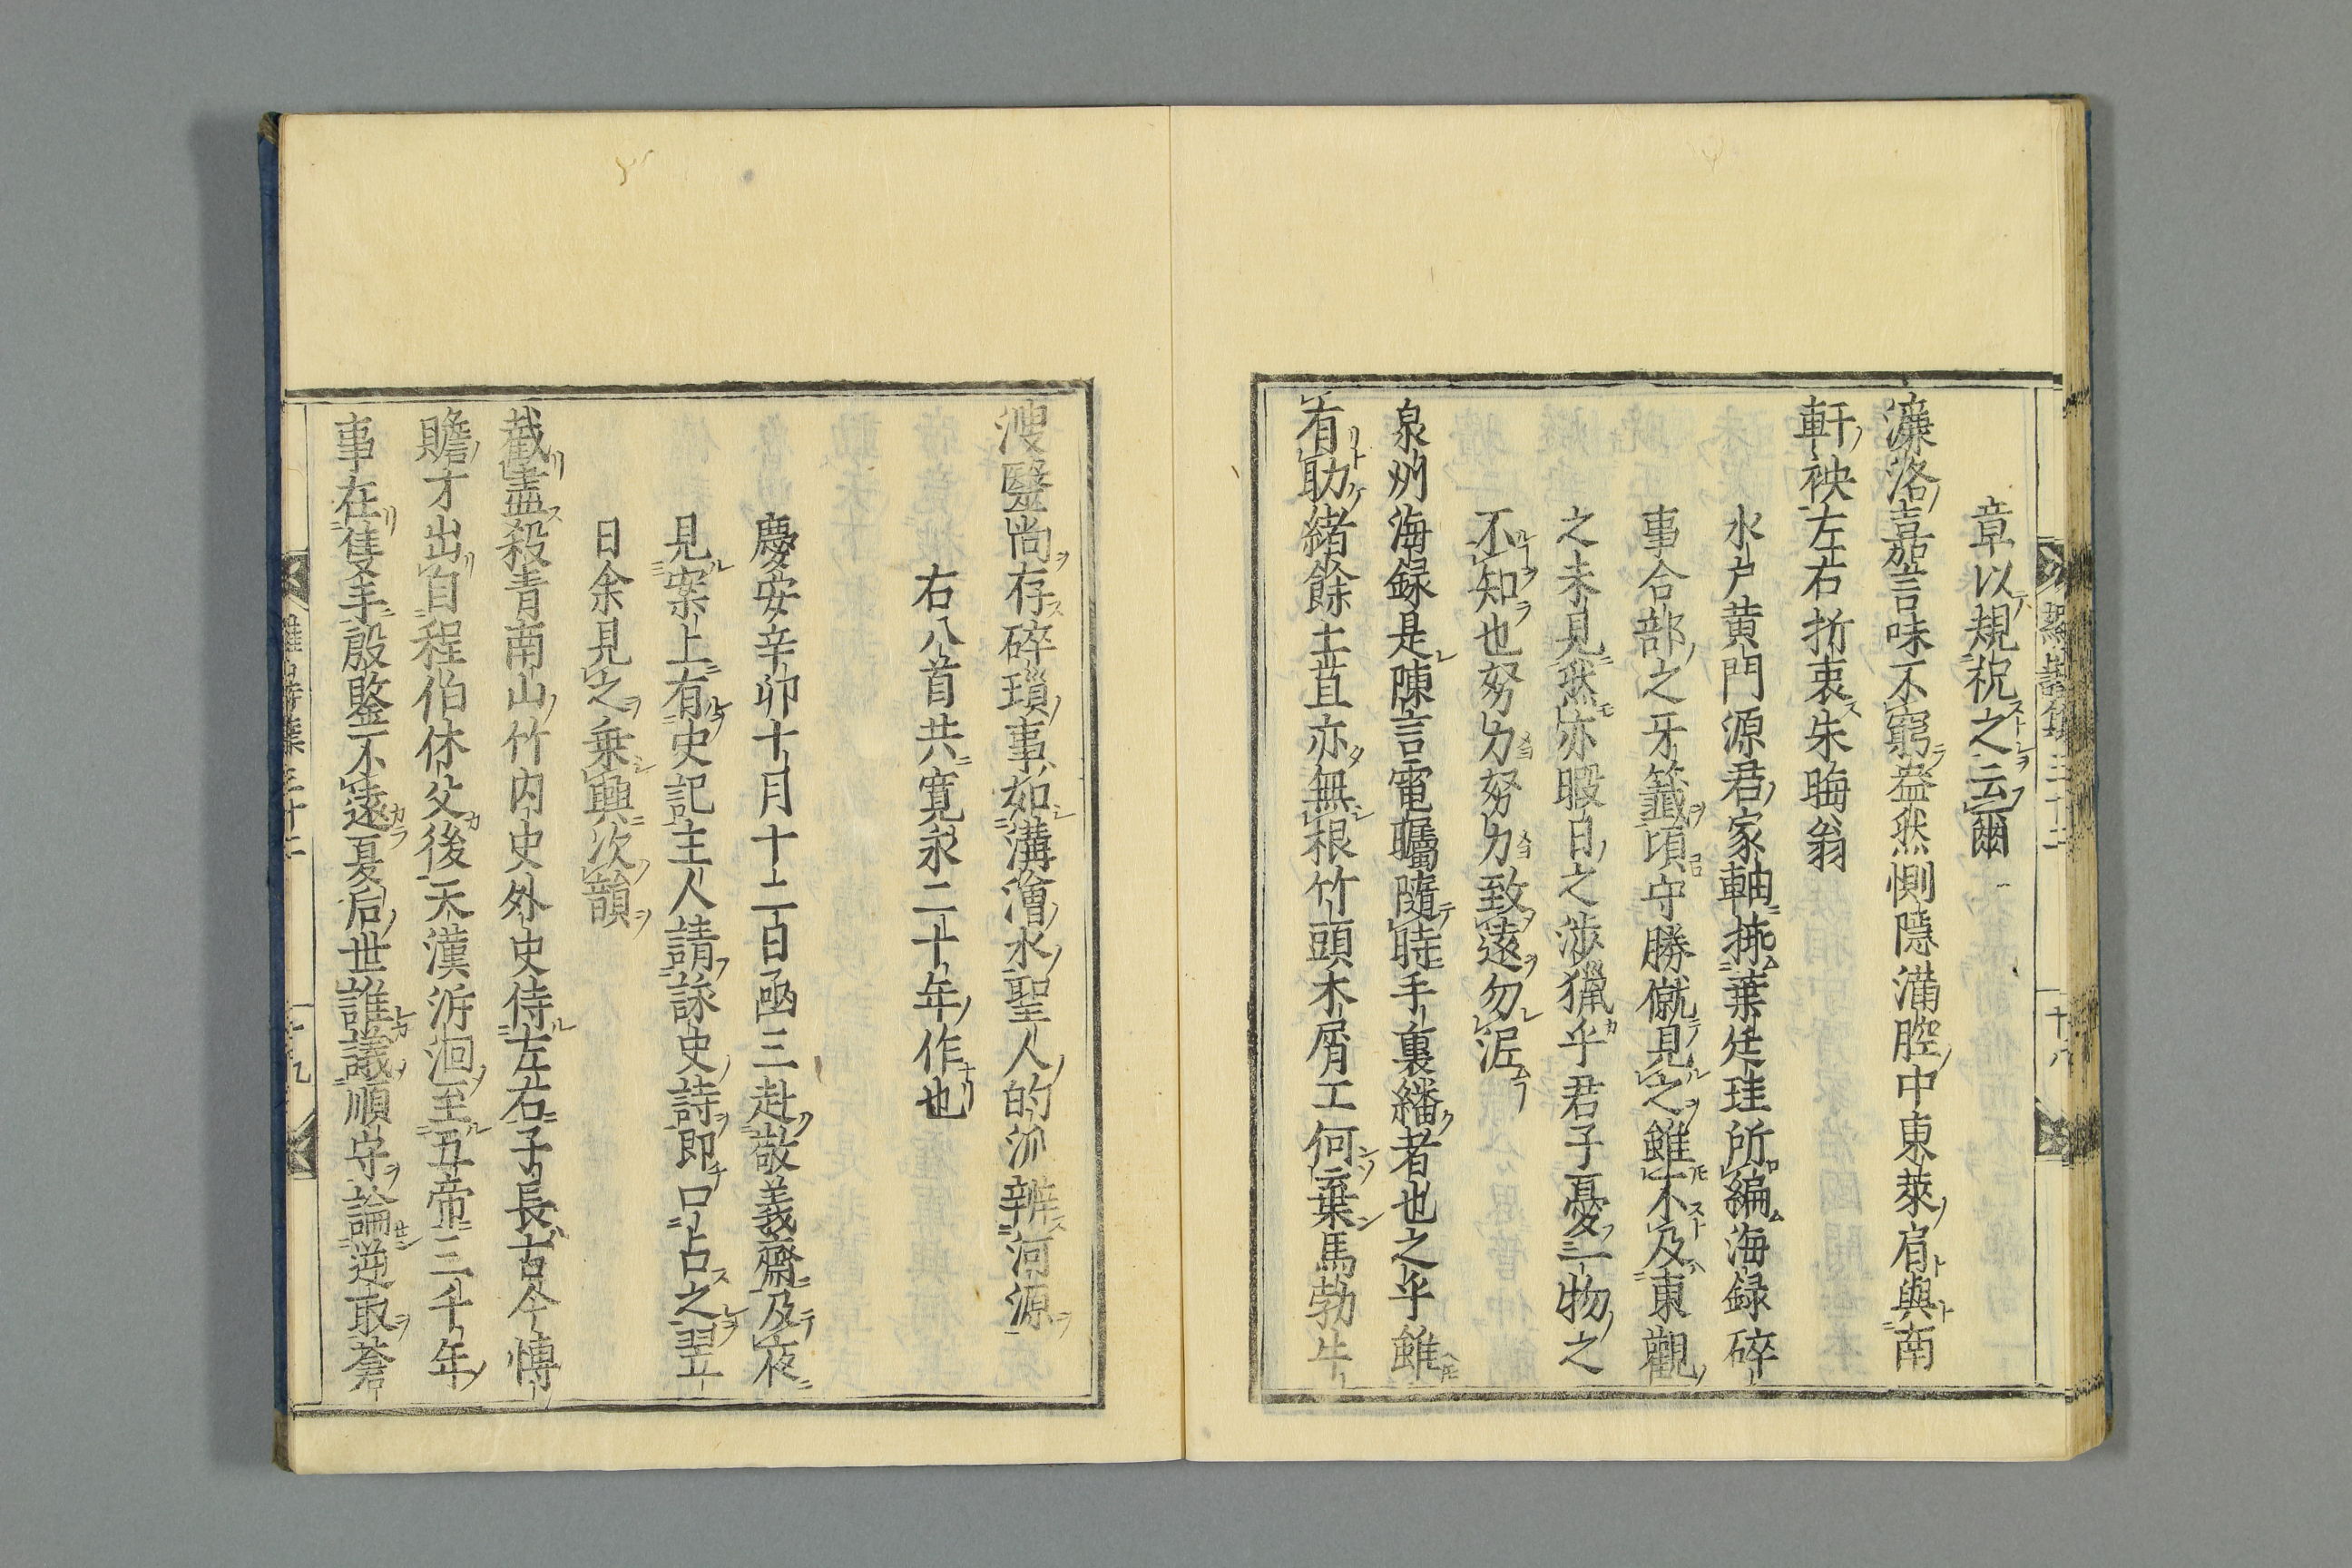 章以規祝之云爾
濂洛嘉言味不窮盎然惻隱滿腔中東萊肩與南
軒袂左右折衷朱晦翁
水户黄門源君家軸揷葉廷珪所編海録碎
事合部之牙籤頃守勝僦見之雖不及東觀
之未見然亦暇日之渉獵乎君子憂一物之
不知也努力努力致遠勿泥
泉州海録是陳言電矚隨時手裏繙者也之乎雖
有助緒餘土苴亦無根竹頭木屑工何棄馬勃牛
溲醫尚存碎瑣事如溝澮水聖人的泒辨河源
右八首共寛永二十年作也
慶安辛卯十月十二日函三赴敬義齋及夜
見案上有史記主人請詠史詩即口占之翌
日余見之乗興次韻
截盡殺青南山竹内史外史侍左右子長古今慱
贍才出自程伯休父後天漢泝洄至五帝三千年
事在隻手殷鑒不遠夏后世誰議順守論逆取蒼